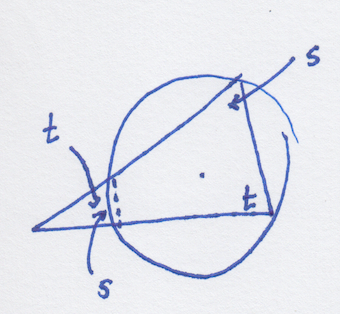 s
t
t
s